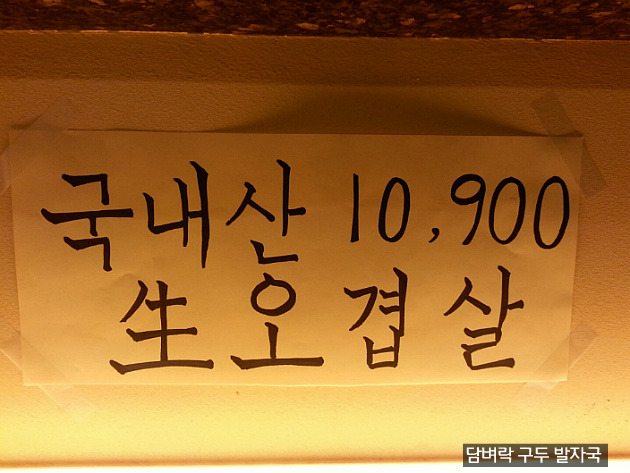 국내산 10,900
生오겹살
담벼락 구두 발자국